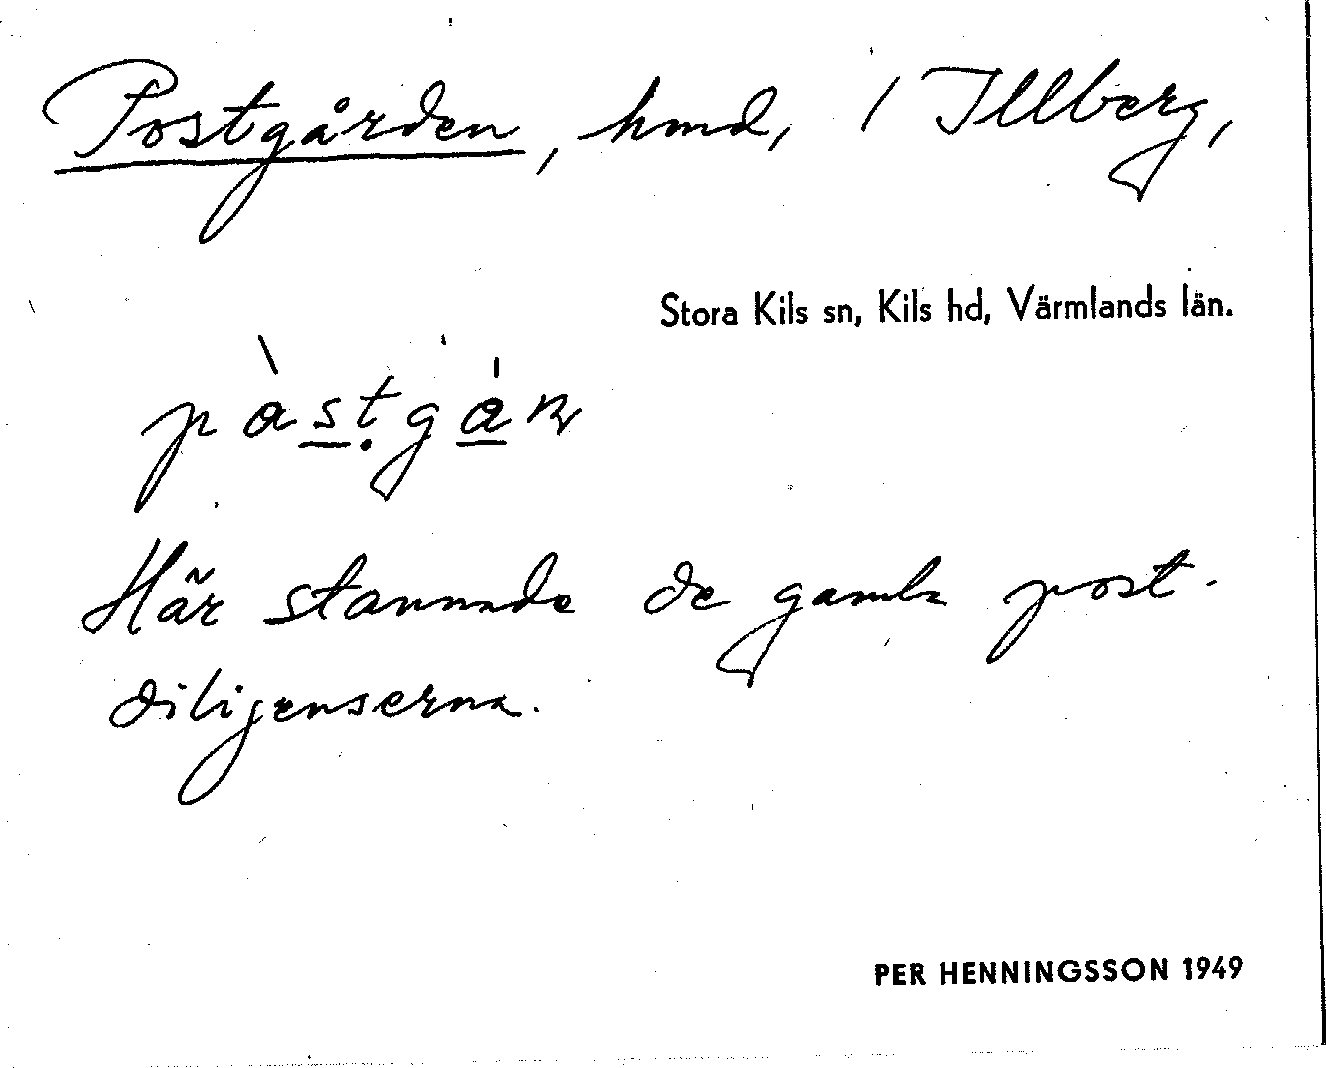 Postgården, hmd, 1 Illberg,
Stora Kils sn, Kils hd, Värmlands län.
Här stannade de gamla post-
diligenserna.
PER HENNINGSSON 1949